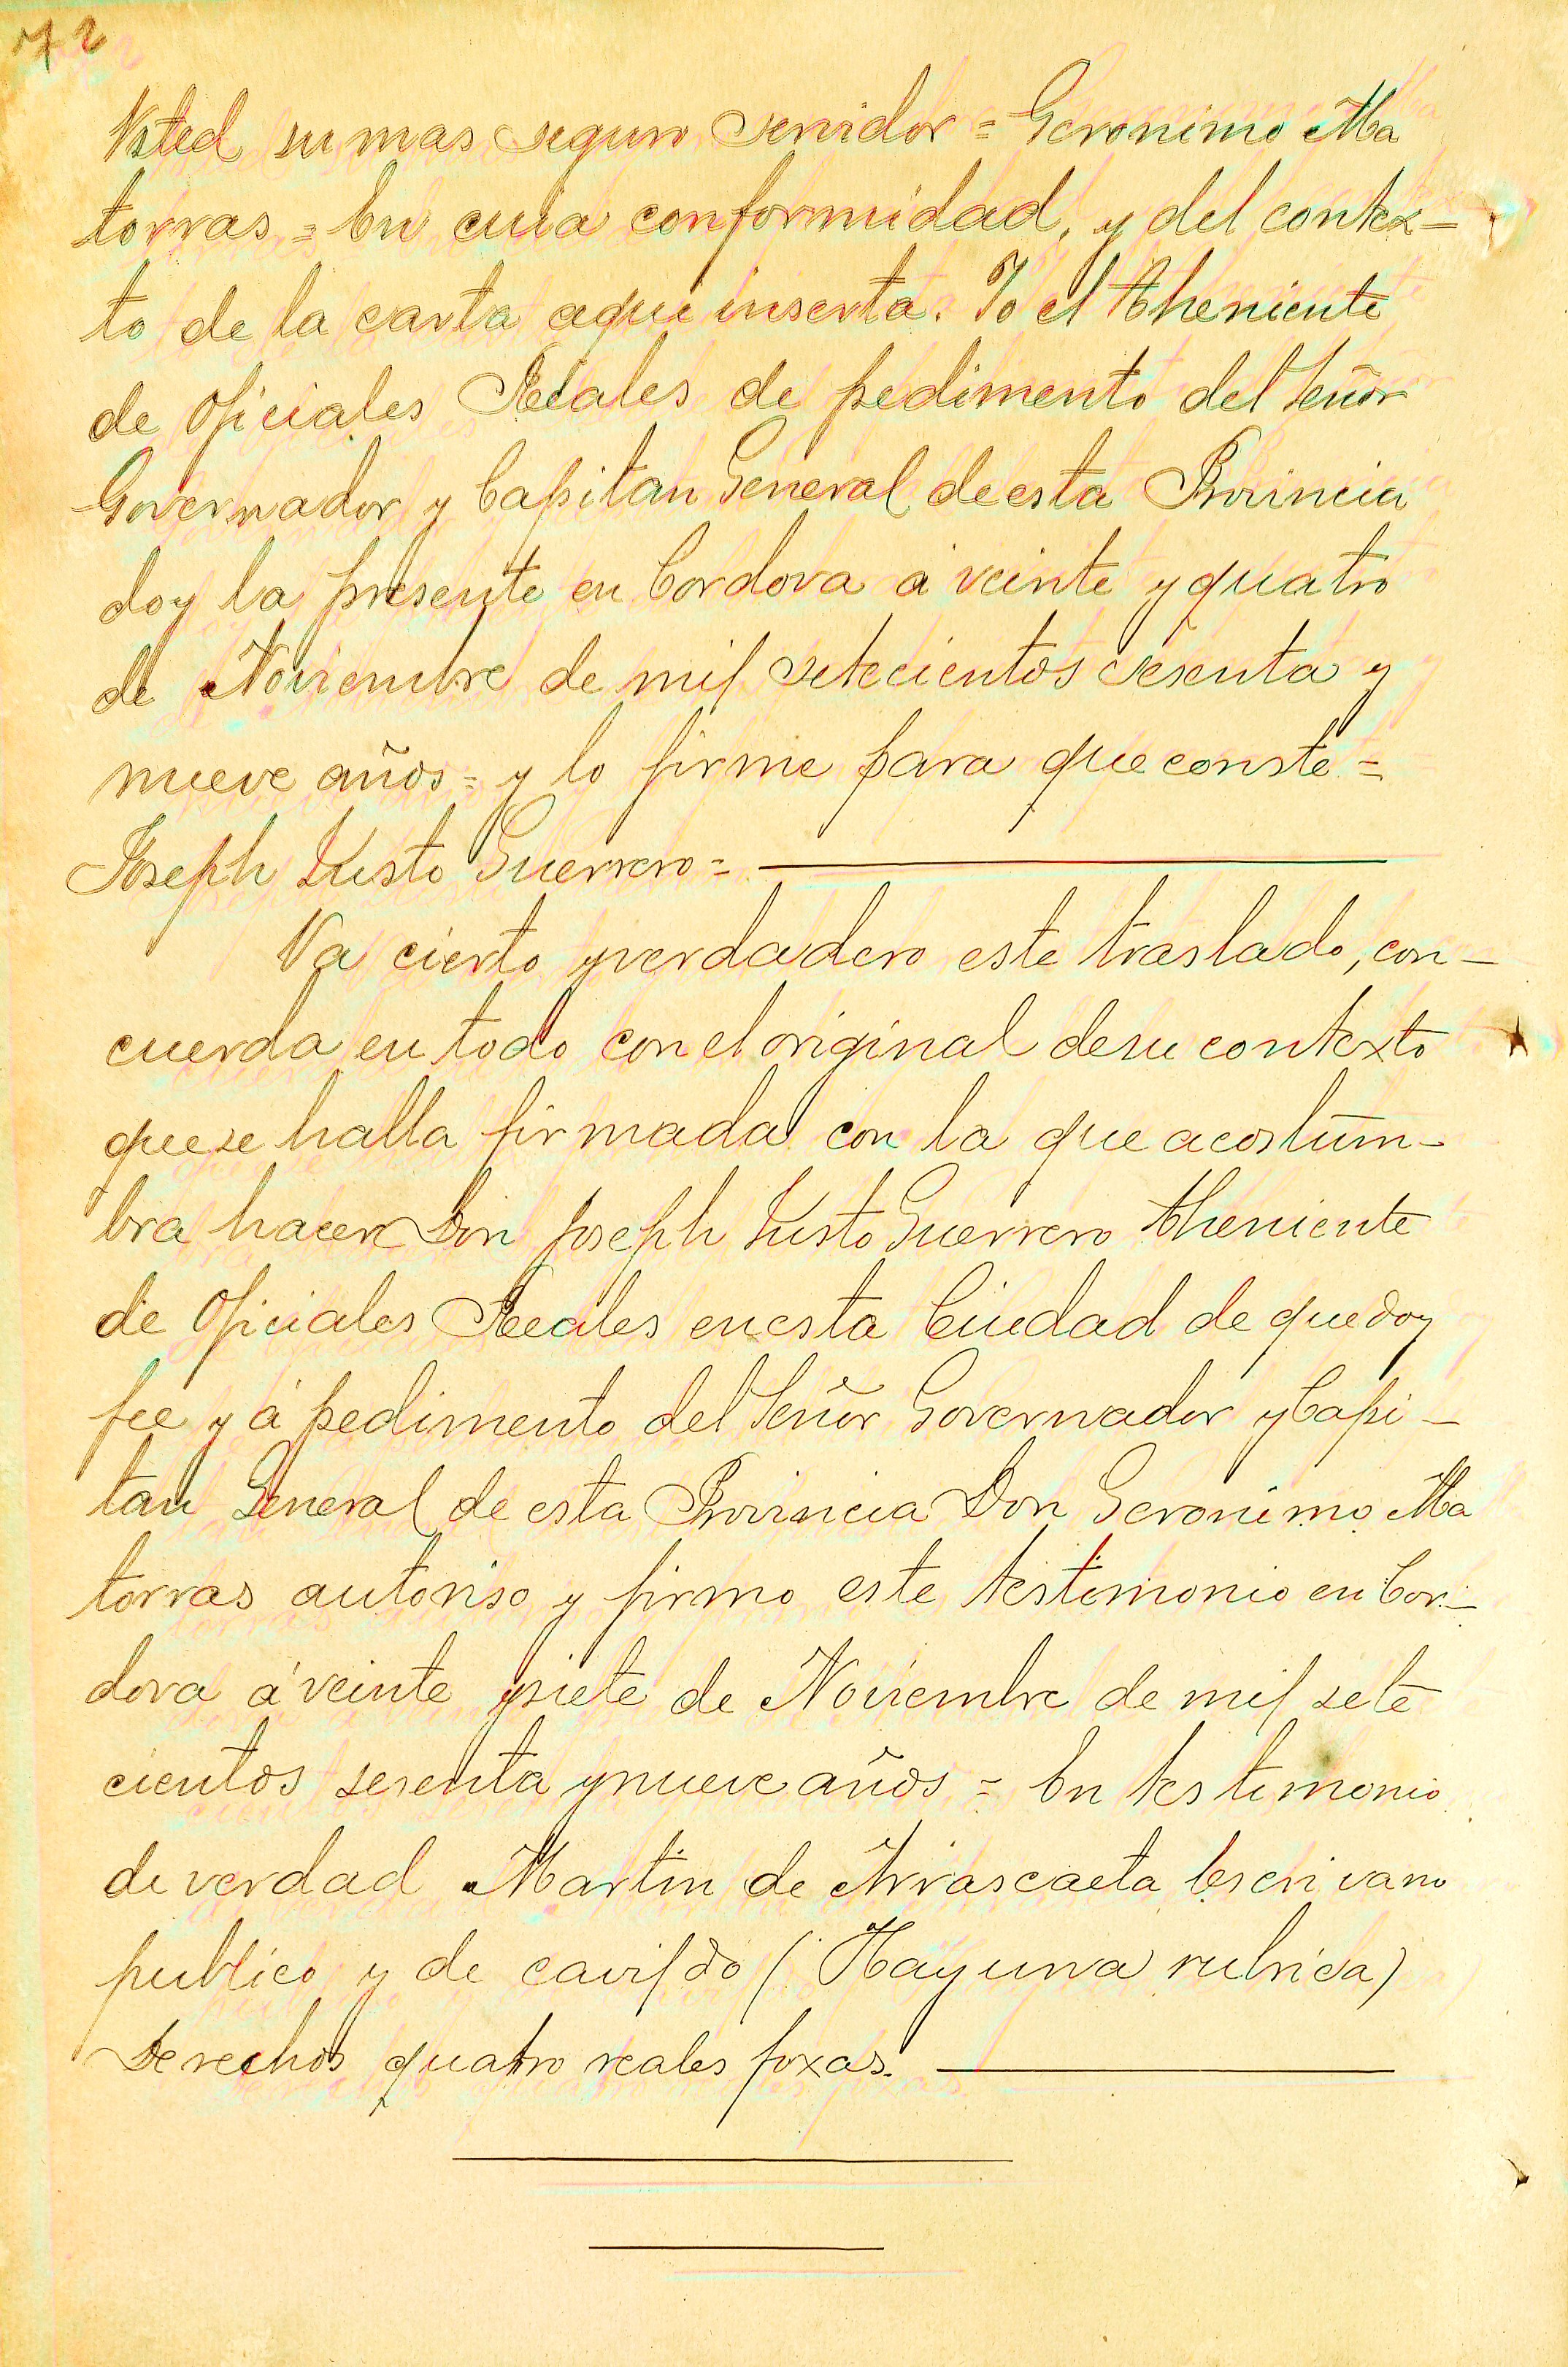 72
Usted su mas seguro servidor = Geronimo Ma
torras = En cuia conformidad, y del contex-
to de la carta aqui inserta. Yo el Theniente
de Oficiales Reales de pedimento del Señor
Governador y Capitan General de esta Provincia
doy la presente en Cordova á veinte y quatro
de Noviembre de mil setecientos sesenta y
nueve años = y lo firme para que conste =
Joseph Justo Guerrero =
Va cierto y verdadero este traslado, con-
cuerda en todo con el original de su contexto
que se halla firmada con la que acostum-
bra hacer Don Joseph Justo Guerrero Theniente
de Oficiales Reales en esta Ciudad de que doy
fee y á pedimento del Señor Governador y Capi-
tan General de esta Provincia Don Geronimo Ma
torras autoriso y firmo este testimonio en Cor-
dova á veinte y siete de Noviembre de mil sete
cientos sesenta y nueve años = En testimonio
de verdad Martin de Arrascaeta Escrivano
publico y de cavildo (Hay una rubrica)
Derechos quatro reales foxas.